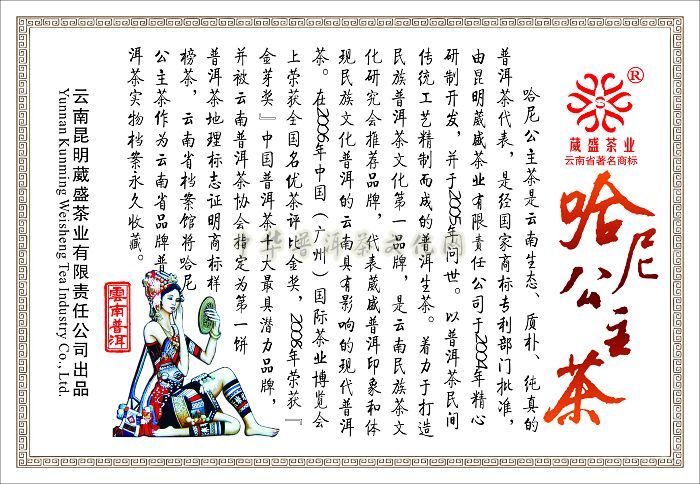 ®
葳盛茶业
云南省著名商标
哈尼
公主
茶
哈尼公主茶是云南生态、质朴、纯真的
普洱茶代表，是经国家商标专利部门批准，
由昆明葳盛茶业有限责任公司于2004年精心
研制开发，并于2005年问世。以普洱茶民间
传统工艺精制而成的普洱生茶。着力于打造
民族普洱茶文化第一品牌，是云南民族茶文
化研究会推荐品牌，代表葳盛普洱印象和体
现民族文化普洱的云南具有影响的现代普洱
茶。在2006年中国（广州）国际茶业博览会
上荣获全国名优茶评比金奖，2008年荣获『
金芽奖』中国普洱茶十大最具潜力品牌，
并被云南普洱茶协会指定为第一饼
普洱茶地理标志证明商标样
榜茶，云南省档案馆将哈尼
公主茶作为云南省品牌普
洱茶实物档案永久收藏。
雲南普洱
云南昆明葳盛茶业有限责任公司出品
Yunnan Kunming Weisheng Tea Industry Co., Ltd.
中华普洱茶文化网